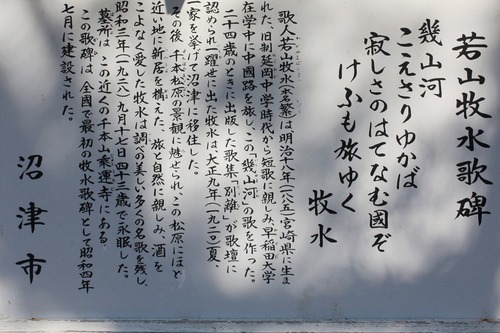 若山牧水歌碑
幾山河
こえさりゆかば
寂しさのはてなむ國ぞ
けふも旅ゆく
牧水
歌人若山牧水(本名繁)は明治十八年(一八八五)宮崎県に生ま
れた。旧制延岡中学時代から短歌に親しみ、早稲田大学
在学中に中國路を旅し、この「幾山河」の歌を作った。
二十四歳のときに出版した歌集「別離」が歌壇に
認められ一躍世に出た牧水は、大正九年(一九二〇)夏、
一家を挙げて沼津に移住した。
その後、千本松原の景観に魅せられ、この松原にほど
近い地に新居を構えた。旅と自然に親しみ、酒を
こよなく愛した牧水は調べの美しい多くの名歌を残し、
昭和三年(一九二八)九月十七日四十三歳で永眠した。
墓所は、この近くの千本山乗運寺にある。
この歌碑は、全國で最初の牧水歌碑として昭和四年
七月に建設された。
沼津市